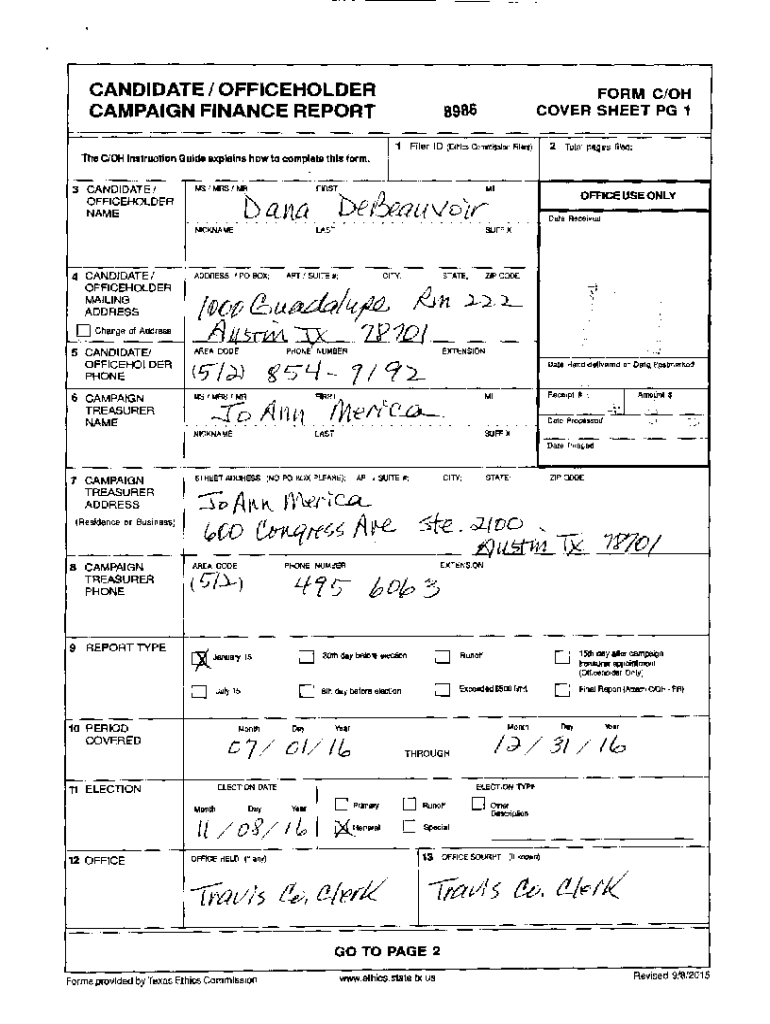 CANDIDATE / OFFICEHOLDER
CAMPAIGN FINANCE REPORT
8986
FORM C/OH
COVER SHEET PG 1
The C/OH Instruction Guide explains how to complete this form.
1 Filer ID (Ethics Commission Filers)
2 Total pages filed:
3 CANDIDATE / OFFICEHOLDER NAME
MS / MRS / MR FIRST MI
Dana DeBeauvoir
NICKNAME LAST SUFFIX
OFFICE USE ONLY
Date Received
4 CANDIDATE / OFFICEHOLDER MAILING ADDRESS
Change of Address
ADDRESS / PO BOX; APT / SUITE #; CITY; STATE; ZIP CODE
1000 Guadalupe Rm 222
Austin TX 78701
5 CANDIDATE/ OFFICEHOLDER PHONE
AREA CODE PHONE NUMBER EXTENSION
(512) 854-9192
Date Hand-delivered or Date Postmarked
6 CAMPAIGN TREASURER NAME
MS / MRS / MR FIRST MI
Jo Ann Merica
NICKNAME LAST SUFFIX
Receipt # Amount $
Date Processed
Date Imaged
7 CAMPAIGN TREASURER ADDRESS
(Residence or Business)
STREET ADDRESS (NO PO BOX PLEASE); APT / SUITE #; CITY; STATE; ZIP CODE
Jo Ann Merica
600 Congress Ave Ste. 2100
Austin TX 78701
8 CAMPAIGN TREASURER PHONE
AREA CODE PHONE NUMBER EXTENSION
(512) 495 6063
9 REPORT TYPE
X January 15
30th day before election
Runoff
15th day after campaign treasurer appointment (Officeholder Only)
July 15
8th day before election
Exceeded $500 limit
Final Report (Attach C/OH - FR)
10 PERIOD COVERED
Month Day Year
07/01/16
THROUGH
Month Day Year
12/31/16
11 ELECTION
ELECTION DATE
Month Day Year
11/08/16
ELECTION TYPE
Primary
Runoff
Other Description
X General
Special
12 OFFICE
OFFICE HELD (if any)
Travis Co. Clerk
13 OFFICE SOUGHT (if known)
Travis Co. Clerk
GO TO PAGE 2
Forms provided by Texas Ethics Commission
www.ethics.state.tx.us
Revised 9/8/2015